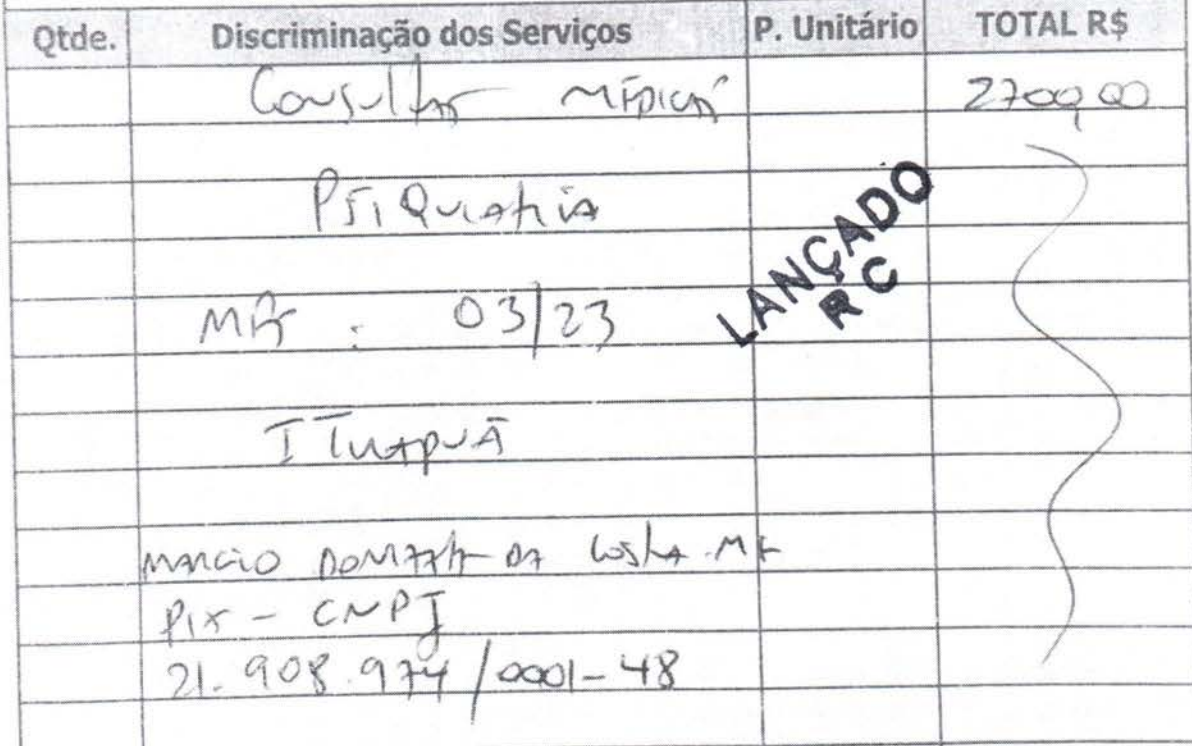 Qtde. Discriminação dos Serviços P. Unitário TOTAL R$
Consultas médicas 2700,00
Psiquiatria
LANÇADO
RC
Mês : 03/23
Ituapuã
Marcio da Costa ME
Pix - CNPJ
21.908.974/0001-48